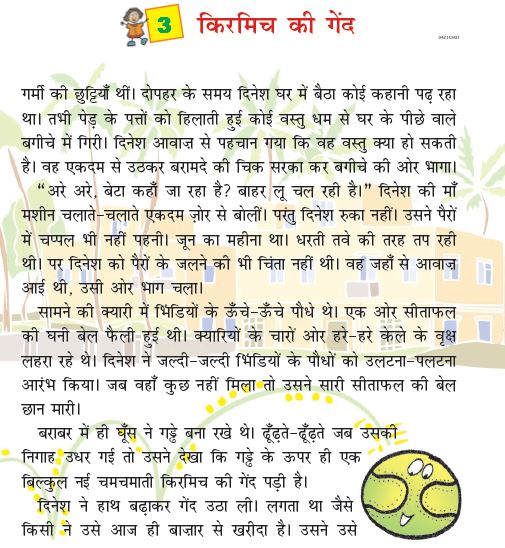 3 किरमिच की गेंद
0421CH03
गर्मी की छुट्टियाँ थीं। दोपहर के समय दिनेश घर में बैठा कोई कहानी पढ़ रहा
था। तभी पेड़ के पत्तों को हिलाती हुई कोई वस्तु धम से घर के पीछे वाले
बगीचे में गिरी। दिनेश आवाज़ से पहचान गया कि वह वस्तु क्या हो सकती
है। वह एकदम से उठकर बरामदे की चिक सरका कर बगीचे की ओर भागा।
“अरे अरे, बेटा कहाँ जा रहा है? बाहर लू चल रही है।” दिनेश की माँ
मशीन चलाते-चलाते एकदम ज़ोर से बोलीं। परंतु दिनेश रुका नहीं। उसने पैरों
में चप्पल भी नहीं पहनी। जून का महीना था। धरती तवे की तरह तप रही
थी। पर दिनेश को पैरों के जलने की भी चिंता नहीं थी। वह जहाँ से आवाज़
आई थी, उसी ओर भाग चला।
सामने की क्यारी में भिंडियों के ऊँचे-ऊँचे पौधे थे। एक ओर सीताफल
की घनी बेल फैली हुई थी। क्यारियों के चारों ओर हरे-हरे केले के वृक्ष
लहरा रहे थे। दिनेश ने जल्दी-जल्दी भिंडियों के पौधों को उलटना-पलटना
आरंभ किया। जब वहाँ कुछ नहीं मिला तो उसने सारी सीताफल की बेल
छान मारी।
बराबर में ही घूँस ने गड्ढे बना रखे थे। ढूँढ़ते-ढूँढ़ते जब उसकी
निगाह उधर गई तो उसने देखा कि गड्ढे के ऊपर ही एक
बिल्कुल नई चमचमाती किरमिच की गेंद पड़ी है।
दिनेश ने हाथ बढ़ाकर गेंद उठा ली। लगता था जैसे
किसी ने उसे आज ही बाज़ार से खरीदा है। उसने उसे